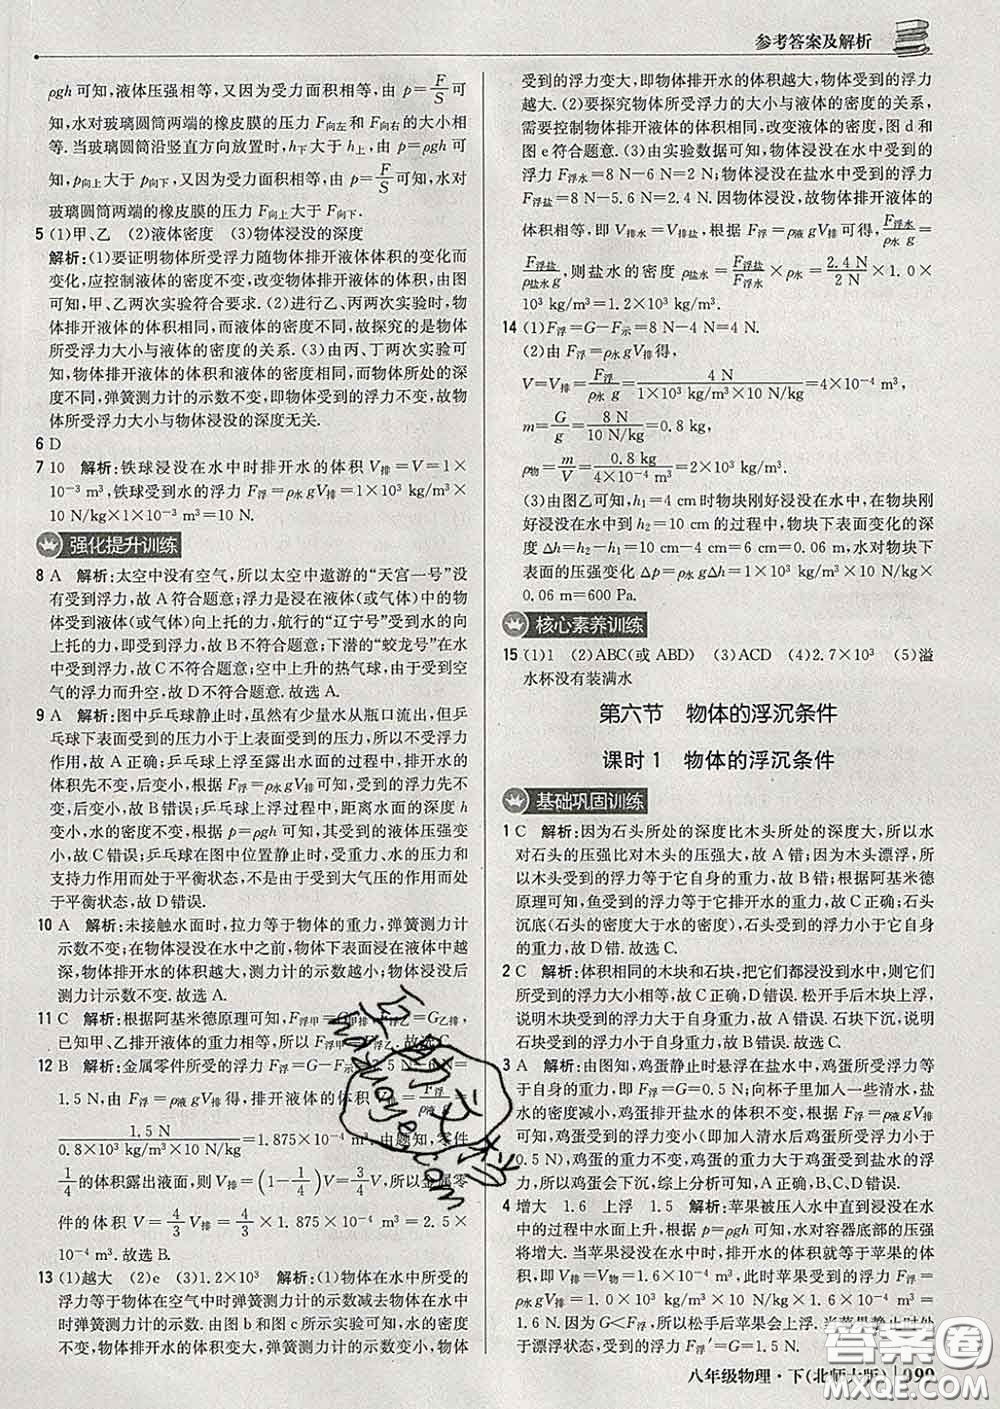 参考答案及解析
ρgh 可知,液体压强相等,又因为受力面积相等,由 p=F/S 可
知,水对玻璃圆筒两端的橡皮膜的压力 F向左和 F向右的大小相
等. 当玻璃圆筒沿竖直方向放置时,h下大于 h上,由 p=ρgh 可
知,p向上大于 p向下,又因为受力面积相等,由 p=F/S 可知,水对
玻璃圆筒两端的橡皮膜的压力 F向上大于 F向下.
5 (1)甲、乙 (2)液体密度 (3)物体浸没的深度
解析:(1)要证明物体所受浮力随物体排开液体体积的变化而
变化,应控制液体的密度不变,改变物体排开液体的体积,由图
可知,甲、乙两次实验符合要求. (2)进行乙、丙两次实验时,物
体排开液体的体积相同,而液体的密度不同,故探究的是物体
所受浮力大小与液体的密度的关系. (3)由丙、丁两次实验可
知,物体排开液体的体积和液体的密度相同,而物体所处的深
度不同,弹簧测力计的示数不变,即物体受到的浮力不变,故物
体所受浮力大小与物体浸没的深度无关.
6 D
7 10 解析:铁球浸没在水中时排开水的体积 V排=V=1×
10⁻³ m³,铁球受到水的浮力 F浮=ρ水gV排=1×10³ kg/m³×
10 N/kg×1×10⁻³ m³=10 N.
强化提升训练
8 A 解析:太空中没有空气,所以太空中遨游的“天宫一号”没
有受到浮力,故 A 符合题意;浮力是浸在液体(或气体)中的物
体受到液体(或气体)向上托的力,航行的“辽宁号”受到水的向
上托的力,即受到浮力,故 B 不符合题意;下潜的“蛟龙号”在水
中受到浮力,故 C 不符合题意;空中上升的热气球,由于受到空
气的浮力而升空,故 D 不符合题意. 故选 A.
9 A 解析:图中乒乓球静止时,虽然有少量水从瓶口流出,但乒
乓球下表面受到的压力小于上表面受到的压力,所以不受浮力
作用,故 A 正确;乒乓球上浮至露出水面的过程中,排开水的
体积先不变,后变小,根据 F浮=ρ水gV排,受到的浮力先不
变,后变小,故 B 错误;乒乓球上浮过程中,距水面的深度 h
变小,水的密度不变,根据 p=ρgh 可知,其受到的液体压强变
小,故 C 错误;乒乓球在图中位置静止时,受重力、水的压力和
支持力作用而处于平衡状态,不是由于受到大气压的作用而处
于平衡状态,故 D 错误.
10 A 解析:未接触水面时,拉力等于物体的重力,弹簧测力计
示数不变;在物体浸没在水中之前,物体下表面在液体中越
深,物体排开水的体积越大,测力计的示数越小;物体浸没后
测力计示数不变. 故选 A.
11 C 解析:根据阿基米德原理可知,F浮甲=G甲排,F浮乙=G乙排,
已知甲、乙排开液体的重力相等,所以 F浮甲=F浮乙. 故选 C.
12 B 解析:金属零件所受的浮力 F浮=G-F示
1.5 N,由 F浮=ρ液gV排得,排开液体的体积 V排=F浮/ρ液g=
1.5 N/0.8×10³ kg/m³×10 N/kg=1.875×10⁻⁴ m³. 由题知,零件
1/4的体积露出液面,则 V排=V-1/4V=3/4V,所以金属零
件的体积 V=4/3V排=4/3×1.875×10⁻⁴ m³=2.5×
10⁻⁴ m³. 故选 B.
13 (1)越大 (2)e (3)1.2×10³ 解析:(1)物体在水中所受的
浮力等于物体在空气中时弹簧测力计的示数减去物体在水中
时弹簧测力计的示数. 由图 b 和图 c 所示实验可知,水的密度
不变,物体排开水的体积变大,弹簧测力计的示数变小,物体
受到的浮力变大,即物体排开水的体积越大,物体受到的浮力
越大. (2)要探究物体所受浮力的大小与液体的密度的关系,
需要控制物体排开液体的体积相同,改变液体的密度,图 d 和
图 e 符合题意. (3)由实验数据可知,物体浸没在水中受到的
浮力 F浮水=8 N-6 N=2 N;物体浸没在盐水中受到的浮力
F浮盐=8 N-5.6 N=2.4 N. 因物体浸没,故物体排开液体的体
积相等,即 V排水=V排盐,根据 F浮=ρ液gV排可得,F浮水/ρ水g=
F浮盐/ρ盐水g,则盐水的密度 ρ盐水=F浮盐/F浮水×ρ水=2.4 N/2 N×1.0×
10³ kg/m³=1.2×10³ kg/m³.
14 (1)F浮=G-F示=8 N-4 N=4 N.
(2)由 F浮=ρ水gV排得,
V=V排=F浮/ρ水g=4 N/1×10³ kg/m³×10 N/kg=4×10⁻⁴ m³,
m=G/g=8 N/10 N/kg=0.8 kg,
ρ物=m/V=0.8 kg/4×10⁻⁴ m³=2×10³ kg/m³.
(3)由图乙可知,h₁=4 cm 时物块刚好浸没在水中,在物块刚
好浸没在水中到 h₂=10 cm 的过程中,物块下表面变化的深
度 Δh=h₂-h₁=10 cm-4 cm=6 cm=0.06 m,水对物块下
表面的压强变化 Δp=ρ水gΔh=1×10³ kg/m³×10 N/kg×
0.06 m=600 Pa.
核心素养训练
15 (1)1 (2)ABC(或 ABD) (3)ACD (4)2.7×10³ (5)溢
水杯没有装满水
第六节 物体的浮沉条件
课时 1 物体的浮沉条件
基础巩固训练
1 C 解析:因为石头所处的深度比木头所处的深度大,所以水
对石头的压强比对木头的压强大,故 A 错;因为木头漂浮,所
以木头受到的浮力等于它自身的重力,故 B 错;根据阿基米德
原理可知,鱼受到的浮力等于它排开水的重力,故 C 正确;石头
沉底(石头的密度大于水的密度),石头受到的浮力小于它自身
的重力,故 D 错. 故选 C.
2 C 解析:体积相同的木块和石块,把它们都浸没在水中,则它
们受到的浮力相等,故 C 正确,D 错误. 松开手后木块上浮,
说明木块受到的浮力大于自身重力,故 B 错误. 石块下沉,说明
石块受到的浮力小于自身重力,故 A 错误. 故选 C.
3 A 解析:由图知,鸡蛋静止时悬浮在盐水中,鸡蛋所受浮力等
于自身的重力,即 F浮=G=0.5 N;向杯子里加入一些清水,盐
水的密度减小,鸡蛋排开盐水的体积不变,根据 F浮=ρ液gV排
可知,鸡蛋受到的浮力变小(即加入清水后鸡蛋所受浮力小于
0.5 N),鸡蛋的重力不变,鸡蛋的重力大于鸡蛋受到盐水的浮
力,所以鸡蛋将下沉,综上分析可知,A 正确,B、C、D 错误.
4 增大 1.6 上浮 1.5 解析:苹果被压入水中直到浸没在水
中的过程中水面上升,根据 p=ρgh 可知,水对容器底部的压强
将增大. 当苹果浸没在水中时,排开水的体积就等于苹果的体
积,因为 V排=V=1.6×10⁻⁴ m³,此时苹果受到的浮力 F浮=
ρ水gV排=1.0×10³ kg/m³×10 N/kg×1.6×10⁻⁴ m³=
1.6 N. 因为 G<F浮,所以松手后苹果将上浮. 当苹果静止时处
于漂浮状态,苹果受到的浮力 F浮′=G=1.5 N.
八年级物理·下(北师大版) 099
答案圈
MXQE.COM